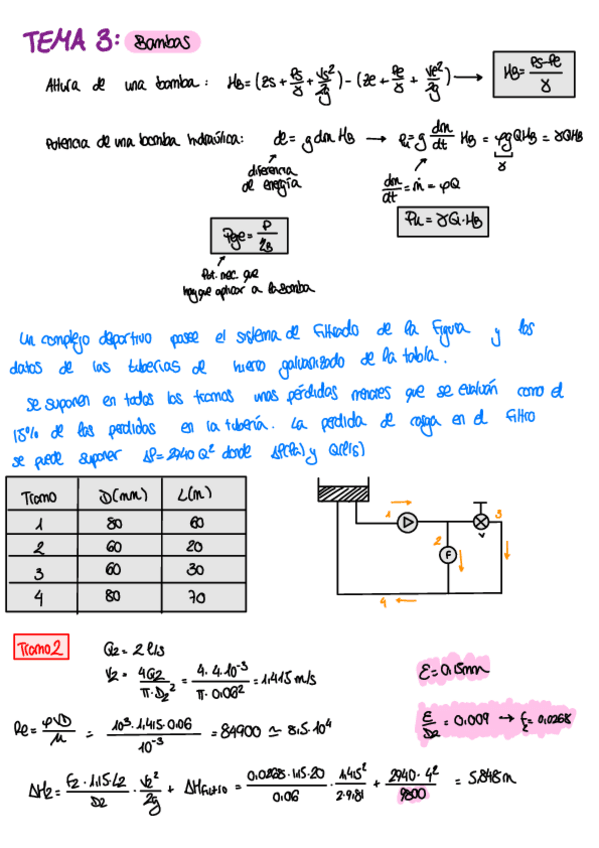 TEMA 3: Bombas
Altura de una bomba: HB = (zs + Ps/γ + Vs²/2g) - (ze + Pe/γ + Ve²/2g) → HB = Ps-Pe/γ
Potencia de una bomba hidráulica: de = g dm HB → Pu = g dm/dt HB = ρgQHB = γQHB
diferencia de energía
dm/dt = ṁ = ρQ
γ
Pu = γQ·HB
Pge = P/ηB
Pot. nec. que
hay que aplicar a la bomba
Un complejo deportivo posee el sistema de filtrado de la figura y los
datos de las tuberías de hierro galvanizado de la tabla.
Se suponen en todos los tramos unas pérdidas menores que se evaluán como el
15% de las perdidas en la tubería. La perdida de carga en el filtro
se puede suponer ΔP = 2940 Q² donde ΔP(Pa) y Q(l/s)
Tramo D(mm) L(m)
1 80 60
2 60 20
3 60 30
4 80 70
1 3
2 F V
4
Tramo 2
Q2 = 2 l/s
V2 = 4Q2/π·D2² = 4·4·10⁻³/π·0,06² = 1,415 m/s
ε = 0,15mm
Re = ρVD/μ = 10³·1,415·0,06/10⁻³ = 84900 ≃ 8,5·10⁴
ε/D2 = 0,009 → f2 = 0,0268
ΔH2 = f2·1,15·L2/D2 · V2²/2g + ΔHfiltro = 0,0268·1,15·20/0,06 · 1,415²/2·9,81 + 2940·4²/9800 = 5,848m